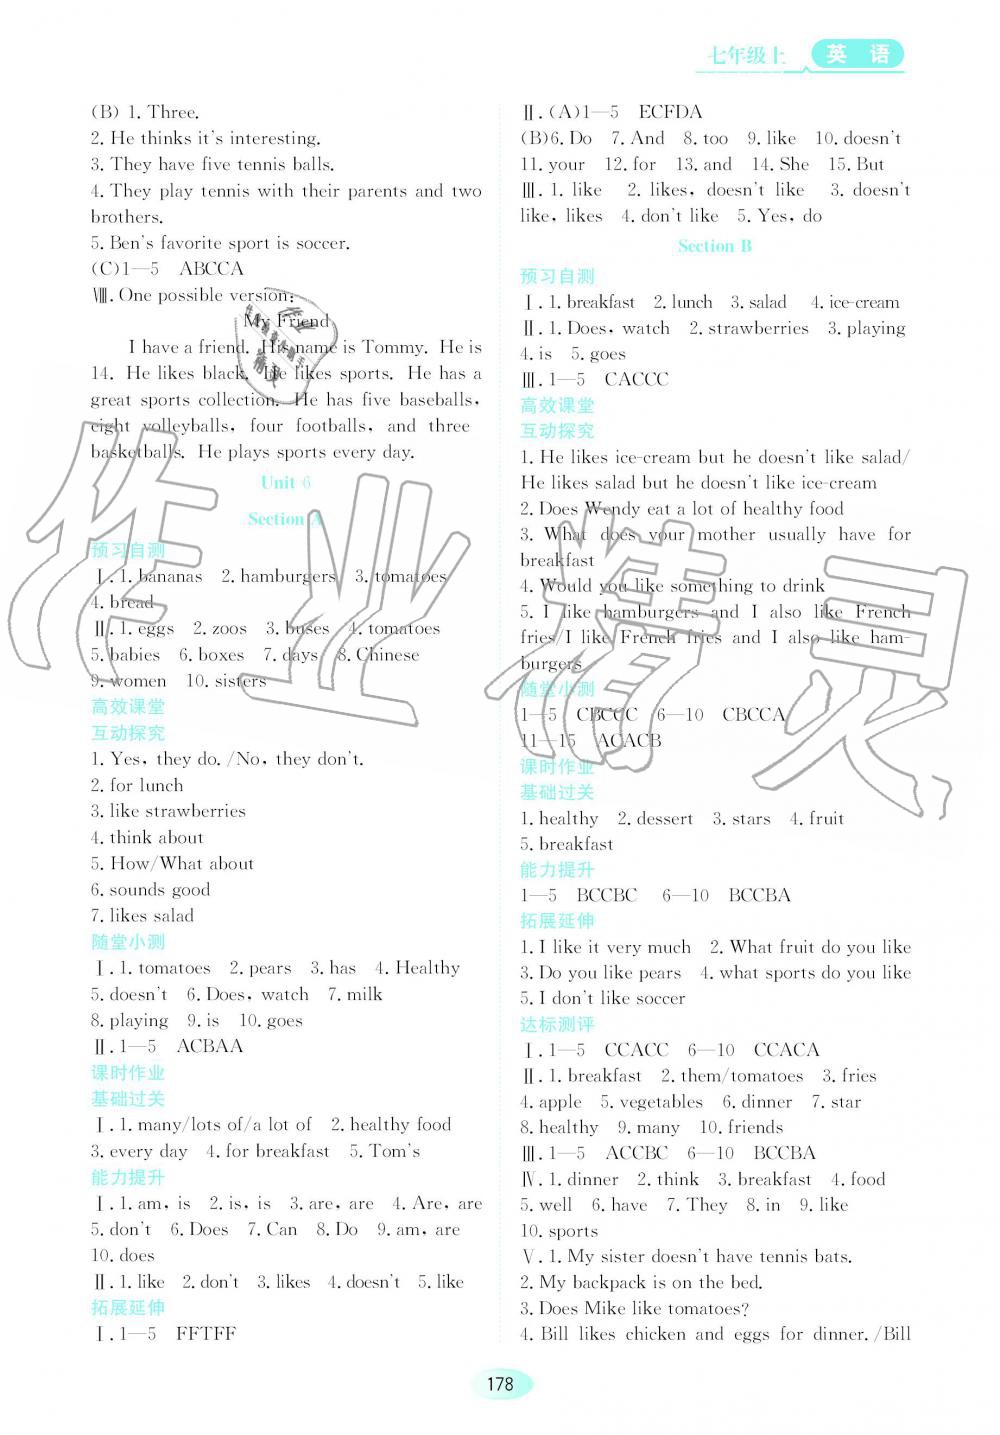 七年级上 英 语
(B) 1. Three.
2. He thinks it's interesting.
3. They have five tennis balls.
4. They play tennis with their parents and two
brothers.
5. Ben's favorite sport is soccer.
(C)1—5 ABCCA
Ⅷ. One possible version:
My Friend
I have a friend. His name is Tommy. He is
14. He likes black. He likes sports. He has a
great sports collection. He has five baseballs,
eight volleyballs, four footballs, and three
basketballs. He plays sports every day.
Unit 6
Section A
预习自测
Ⅰ. 1. bananas 2. hamburgers 3. tomatoes
4. bread
Ⅱ. 1. eggs 2. zoos 3. buses 4. tomatoes
5. babies 6. boxes 7. days 8. Chinese
9. women 10. sisters
高效课堂
互动探究
1. Yes, they do. /No, they don't.
2. for lunch
3. like strawberries
4. think about
5. How/What about
6. sounds good
7. likes salad
随堂小测
Ⅰ. 1. tomatoes 2. pears 3. has 4. Healthy
5. doesn't 6. Does, watch 7. milk
8. playing 9. is 10. goes
Ⅱ. 1—5 ACBAA
课时作业
基础过关
Ⅰ. 1. many/lots of/a lot of 2. healthy food
3. every day 4. for breakfast 5. Tom's
能力提升
Ⅰ. 1. am, is 2. is, is 3. are, are 4. Are, are
5. don't 6. Does 7. Can 8. Do 9. am, are
10. does
Ⅱ. 1. like 2. don't 3. likes 4. doesn't 5. like
拓展延伸
Ⅰ. 1—5 FFTFF
Ⅱ. (A)1—5 ECFDA
(B)6. Do 7. And 8. too 9. like 10. doesn't
11. your 12. for 13. and 14. She 15. But
Ⅲ. 1. like 2. likes, doesn't like 3. doesn't
like, likes 4. don't like 5. Yes, do
Section B
预习自测
Ⅰ. 1. breakfast 2. lunch 3. salad 4. ice-cream
Ⅱ. 1. Does, watch 2. strawberries 3. playing
4. is 5. goes
Ⅲ. 1—5 CACCC
高效课堂
互动探究
1. He likes ice-cream but he doesn't like salad/
He likes salad but he doesn't like ice-cream
2. Does Wendy eat a lot of healthy food
3. What does your mother usually have for
breakfast
4. Would you like something to drink
5. I like hamburgers and I also like French
fries/I like French fries and I also like ham-
burgers
随堂小测
1—5 CBCCC 6—10 CBCCA
11—15 ACACB
课时作业
基础过关
1. healthy 2. dessert 3. stars 4. fruit
5. breakfast
能力提升
1—5 BCCBC 6—10 BCCBA
拓展延伸
1. I like it very much 2. What fruit do you like
3. Do you like pears 4. what sports do you like
5. I don't like soccer
达标测评
Ⅰ. 1—5 CCACC 6—10 CCACA
Ⅱ. 1. breakfast 2. them/tomatoes 3. fries
4. apple 5. vegetables 6. dinner 7. star
8. healthy 9. many 10. friends
Ⅲ. 1—5 ACCBC 6—10 BCCBA
Ⅳ. 1. dinner 2. think 3. breakfast 4. food
5. well 6. have 7. They 8. in 9. like
10. sports
Ⅴ. 1. My sister doesn't have tennis bats.
2. My backpack is on the bed.
3. Does Mike like tomatoes?
4. Bill likes chicken and eggs for dinner. /Bill
178
作业精灵